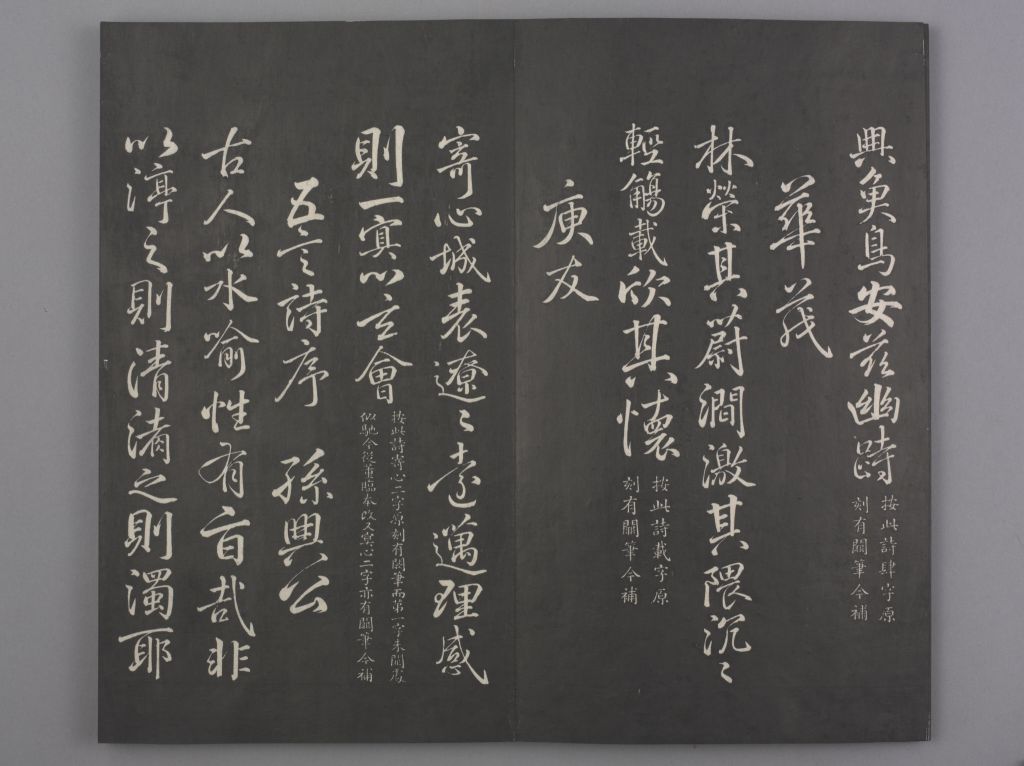 興魚鳥安茲幽跱
按此詩肆字原
刻有闕筆今補
華茂
林榮其蔚澗激其隈沉〻
輕觴載欣其懷
按此詩載字原
刻有闕筆今補
庾友
寄心城表遼〻遠邁理感
則一冥以玄會
按此詩寄心二字原刻有闕筆而第一字未闕處
似馳今從董臨本改又寄心二字亦有闕筆今補
五言詩序 孫興公
古人以水喻性有旨哉非
以渟之則清淆之則濁耶